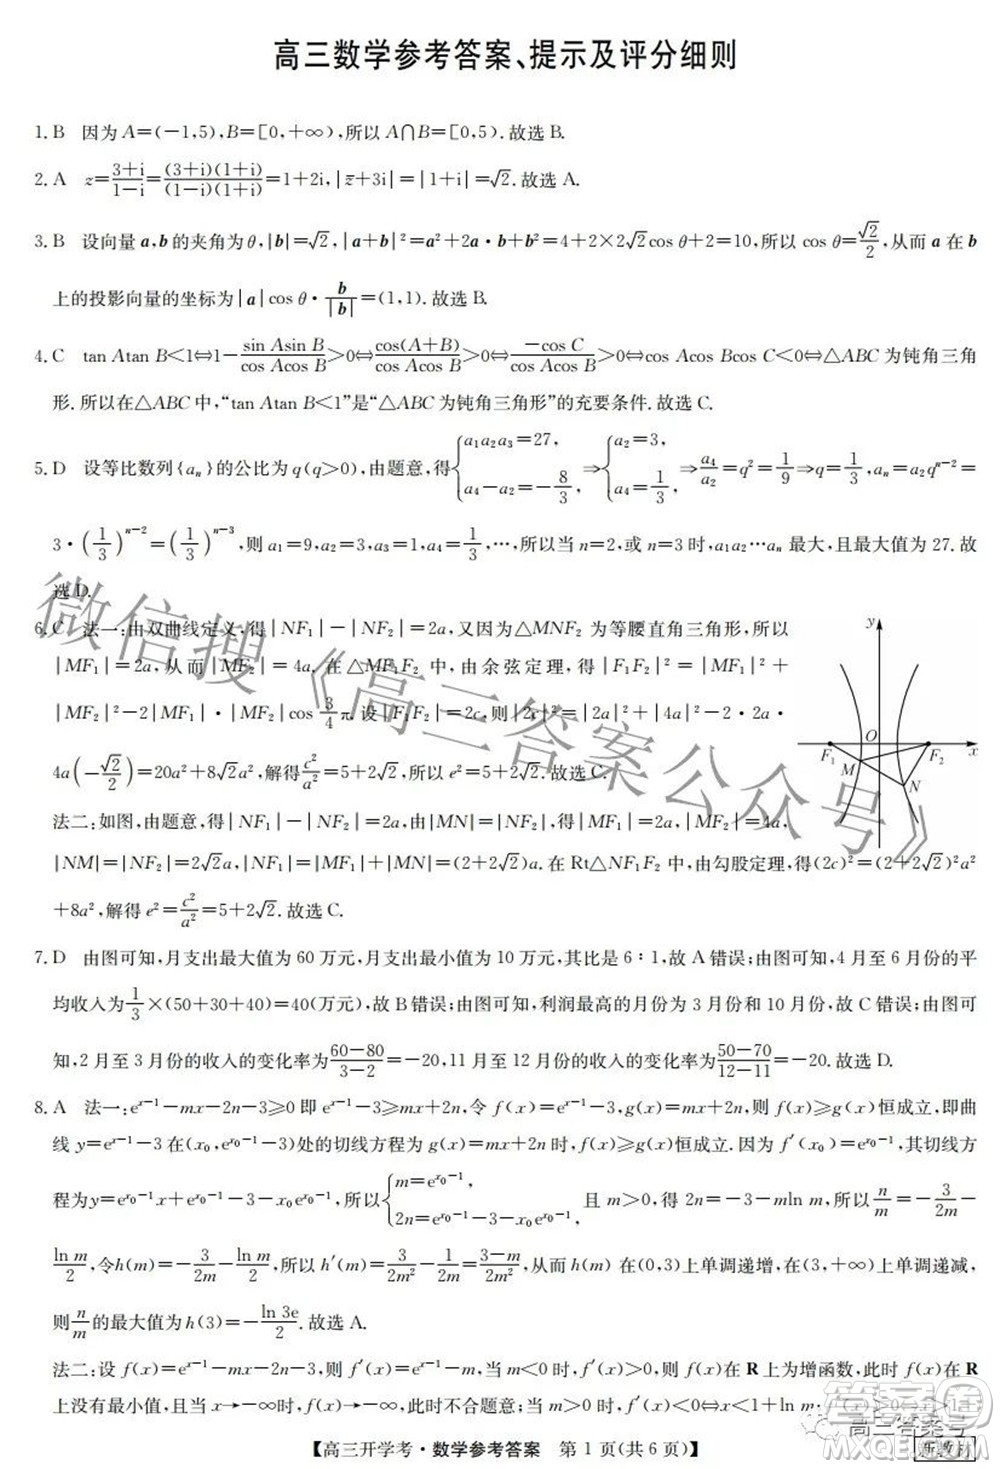 高三数学参考答案、提示及评分细则
1. B 因为A=(-1,5),B=[0,+∞),所以A∩B=[0,5).故选B.
2. A z=\frac{3+i}{1-i}=\frac{(3+i)(1+i)}{(1-i)(1+i)}=1+2i,|\bar{z}+3i|=|1+i|=\sqrt{2}.故选A.
3. B 设向量a,b的夹角为θ,|b|=\sqrt{2},|a+b|²=a²+2a·b+b²=4+2×2\sqrt{2}cos θ+2=10,所以cos θ=\frac{\sqrt{2}}{2},从而a在b
上的投影向量的坐标为|a|cos θ·\frac{b}{|b|}=(1,1).故选B.
4. C tan Atan B<1⇔1-\frac{sin Asin B}{cos Acos B}>0⇔\frac{cos(A+B)}{cos Acos B}>0⇔\frac{-cos C}{cos Acos B}>0⇔cos Acos Bcos C<0⇔△ABC为钝角三角
形.所以在△ABC中,“tan Atan B<1”是“△ABC为钝角三角形”的充要条件.故选C.
5. D 设等比数列{aₙ}的公比为q(q>0),由题意,得{a₁a₂a₃=27, a₄-a₂=-\frac{8}{3} ⇒{a₂=3, a₄=\frac{1}{3} ⇒\frac{a₄}{a₂}=q²=\frac{1}{9}⇒q=\frac{1}{3},aₙ=a₂qⁿ⁻²=
3·(\frac{1}{3})ⁿ⁻²=(\frac{1}{3})ⁿ⁻³,则a₁=9,a₂=3,a₃=1,a₄=\frac{1}{3},…,所以当n=2,或n=3时,a₁a₂…aₙ最大,且最大值为27.故
选D.
6. C 法一:由双曲线定义,得|NF₁|-|NF₂|=2a,又因为△MNF₂为等腰直角三角形,所以
|MF₁|=2a,从而|MF₂|=4a.在△MF₁F₂中,由余弦定理,得|F₁F₂|²=|MF₁|²+
|MF₂|²-2|MF₁|·|MF₂|cos\frac{3}{4}π.设|F₁F₂|=2c,则|2c|²=|2a|²+|4a|²-2·2a·
4a(-\frac{\sqrt{2}}{2})=20a²+8\sqrt{2}a²,解得\frac{c²}{a²}=5+2\sqrt{2},所以e²=5+2\sqrt{2}.故选C.
法二:如图,由题意,得|NF₁|-|NF₂|=2a,由|MN|=|NF₂|,得|MF₁|=2a,|MF₂|=4a,
|NM|=|NF₂|=2\sqrt{2}a,|NF₁|=|MF₁|+|MN|=(2+2\sqrt{2})a.在Rt△NF₁F₂中,由勾股定理,得(2c)²=(2+2\sqrt{2})²a²
+8a²,解得e²=\frac{c²}{a²}=5+2\sqrt{2}.故选C.
y
O
x
F₁
F₂
M
N
7. D 由图可知,月支出最大值为60万元,月支出最小值为10万元,其比是6∶1,故A错误;由图可知,4月至6月份的平
均收入为\frac{1}{3}×(50+30+40)=40(万元),故B错误;由图可知,利润最高的月份为3月份和10月份,故C错误;由图可
知,2月至3月份的收入的变化率为\frac{60-80}{3-2}=-20,11月至12月份的收入的变化率为\frac{50-70}{12-11}=-20.故选D.
8. A 法一:eˣ⁻¹-mx-2n-3≥0即eˣ⁻¹-3≥mx+2n,令f(x)=eˣ⁻¹-3,g(x)=mx+2n,则f(x)≥g(x)恒成立,即曲
线y=eˣ⁻¹-3在(x₀,e^{x₀-1}-3)处的切线方程为g(x)=mx+2n时,f(x)≥g(x)恒成立.因为f′(x₀)=e^{x₀-1},其切线方
程为y=e^{x₀-1}x+e^{x₀-1}-3-x₀e^{x₀-1},所以{m=e^{x₀-1}, 2n=e^{x₀-1}-3-x₀e^{x₀-1} 且m>0,得2n=-3-mln m,所以\frac{n}{m}=-\frac{3}{2m}-
\frac{ln m}{2},令h(m)=-\frac{3}{2m}-\frac{ln m}{2},所以h′(m)=\frac{3}{2m²}-\frac{1}{2m}=\frac{3-m}{2m²},从而h(m)在(0,3)上单调递增,在(3,+∞)上单调递减,
则\frac{n}{m}的最大值为h(3)=-\frac{ln 3e}{2}.故选A.
法二:设f(x)=eˣ⁻¹-mx-2n-3,则f′(x)=eˣ⁻¹-m,当m<0时,f′(x)>0,则f(x)在R上为增函数,此时f(x)在R
上没有最小值,且当x→-∞时,f(x)→-∞,不合题意;所以m>0.此时,f′(x)<0⇔x<1+ln m,f′(x)>0⇔x>1+
【高三开学考·数学参考答案 第1页(共6页)】
新教材
微信搜《高三答案公众号》
高三答案号
答案圈
MXQE.COM